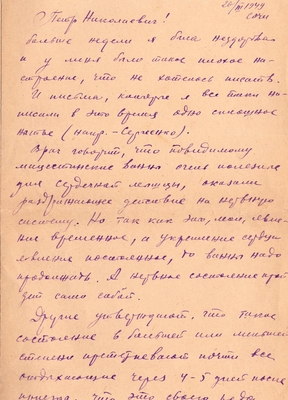 20/XI 1949
Сочи
Петр Николаевич!
Больше недели я была нездорова
и у меня было такое плохое на-
строение, что не хотелось писать.
И письма, которые я все таки на-
писала в это время одно сплошное
нытье (напр. Сергиенко).
Врач говорит, что повидимому
мацестинские ванны очень полезные
для сердечной мышцы, оказали
раздражающее действие на нервную
систему. Но так как это, мол, явле-
ние временное, а укрепление сердца
явление постоянное, то ванны надо
продолжать. А нервное состояние прой
дет само собой.
Другие утверждают, что такое
состояние в большей или меньшей
степени претерпевают почти все
отдыхающие через 4-5 дней после
приезда, что это своего рода